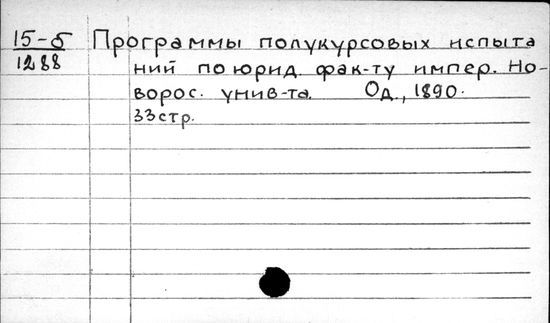 15-б Программы полукурсовых испыта
1288 ний по юрид. фак-ту импер. Но-
ворос. унив-та. Од., 1890.
33стр.